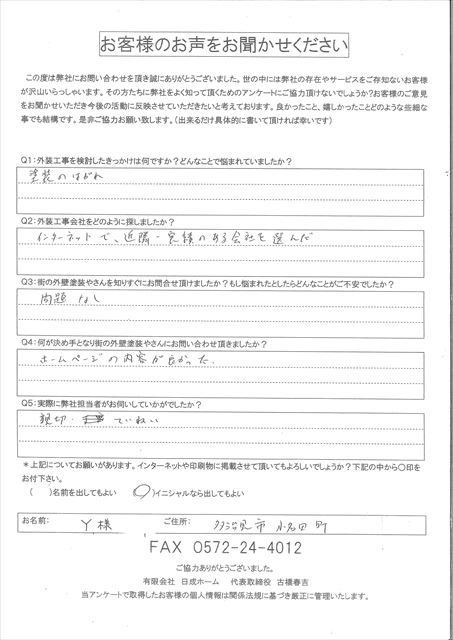 お客様のお声をお聞かせください
この度は弊社にお問い合わせを頂き誠にありがとうございました。世の中には弊社の存在やサービスをご存知ないお客様
が沢山いらっしゃいます。その方たちに弊社をよく知って頂くためのアンケートにご協力頂けないでしょうか?お客様のご意見
をお聞かせいただき今後の活動に反映させていただきたいと考えております。良かったこと、嬉しかったことどのような些細な
事でも結構です。是非ご協力お願い致します。(出来るだけ具体的に書いて頂ければ幸いです)
Q1:外装工事を検討したきっかけは何ですか?どんなことで悩まれていましたか?
塗装のはがれ
Q2:外装工事会社をどのように探しましたか?
インターネットで、近隣・実績のある会社を選んだ
Q3:街の外壁塗装やさんを知りすぐにお問合せ頂けましたか?もし悩まれたとしたらどんなことがご不安でしたか?
問題なし
Q4:何が決め手となり街の外壁塗装やさんにお問い合わせ頂きましたか?
ホームページの内容が良かった.
Q5:実際に弊社担当者がお伺いしていかがでしたか?
親切・ていねい
*上記についてお願いがあります。インターネットや印刷物に掲載させて頂いてもよろしいでしょうか?下記の中から〇印を
お付下さい。
( )名前を出してもよい (〇)イニシャルなら出してもよい
お名前: Y様 ご住所: 多治見市小名田町
FAX 0572-24-4012
ご協力ありがとうございました。
有限会社 日成ホーム 代表取締役 古橋春吉
当アンケートで取得したお客様の個人情報は関係法規に基づき厳正に管理いたします。